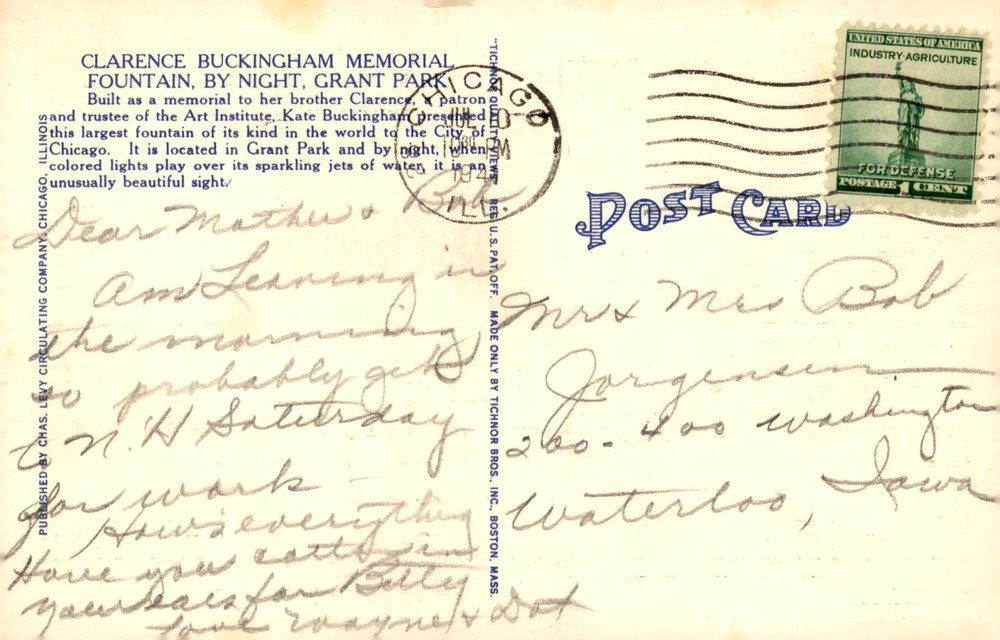 CLARENCE BUCKINGHAM MEMORIAL
FOUNTAIN, BY NIGHT, GRANT PARK
Built as a memorial to her brother Clarence, a patron
and trustee of the Art Institute, Kate Buckingham presented
this largest fountain of its kind in the world to the City of
Chicago. It is located in Grant Park and by night, when
colored lights play over its sparkling jets of water, it is an
unusually beautiful sight.
Dear Mother & Bob
Am Leaving in
the morning
so probably get
to N.H Saturday
for work –
How's everything
Have you cotton in
your ears for Betty
Love Wayne & Dot
PUBLISHED BY CHAS. LEVY CIRCULATING COMPANY, CHICAGO, ILLINOIS
"TICHNOR QUALITY VIEWS" REG. U.S. PAT. OFF. MADE ONLY BY TICHNOR BROS., INC., BOSTON, MASS.
CHICAGO
JUL
1030 PM
194
ILL.
UNITED STATES OF AMERICA
INDUSTRY·AGRICULTURE
FOR DEFENSE
POSTAGE 1 CENT
POST CARD
Mr & Mrs Bob
Jorgensen
200-400 Washington
Waterloo, Iowa